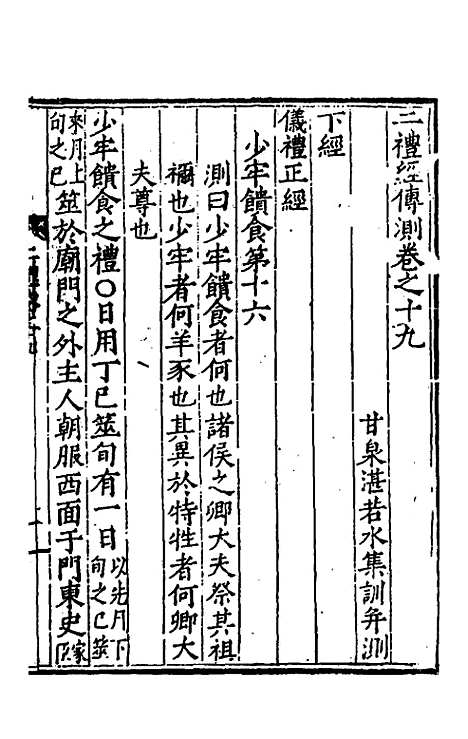 二禮經傳測卷之十九
甘泉湛若水集訓并測
下經
儀禮正經
少牢饋食第十六
測曰少牢饋食者何也諸侯之卿大夫祭其祖
禰也少牢者何羊豕也其異於特牲者何卿大
夫尊也
少牢饋食之禮○日用丁巳筮旬有一日以先月下旬之巳筮
來月上旬之巳筮於廟門之外主人朝服西面于門東史家臣